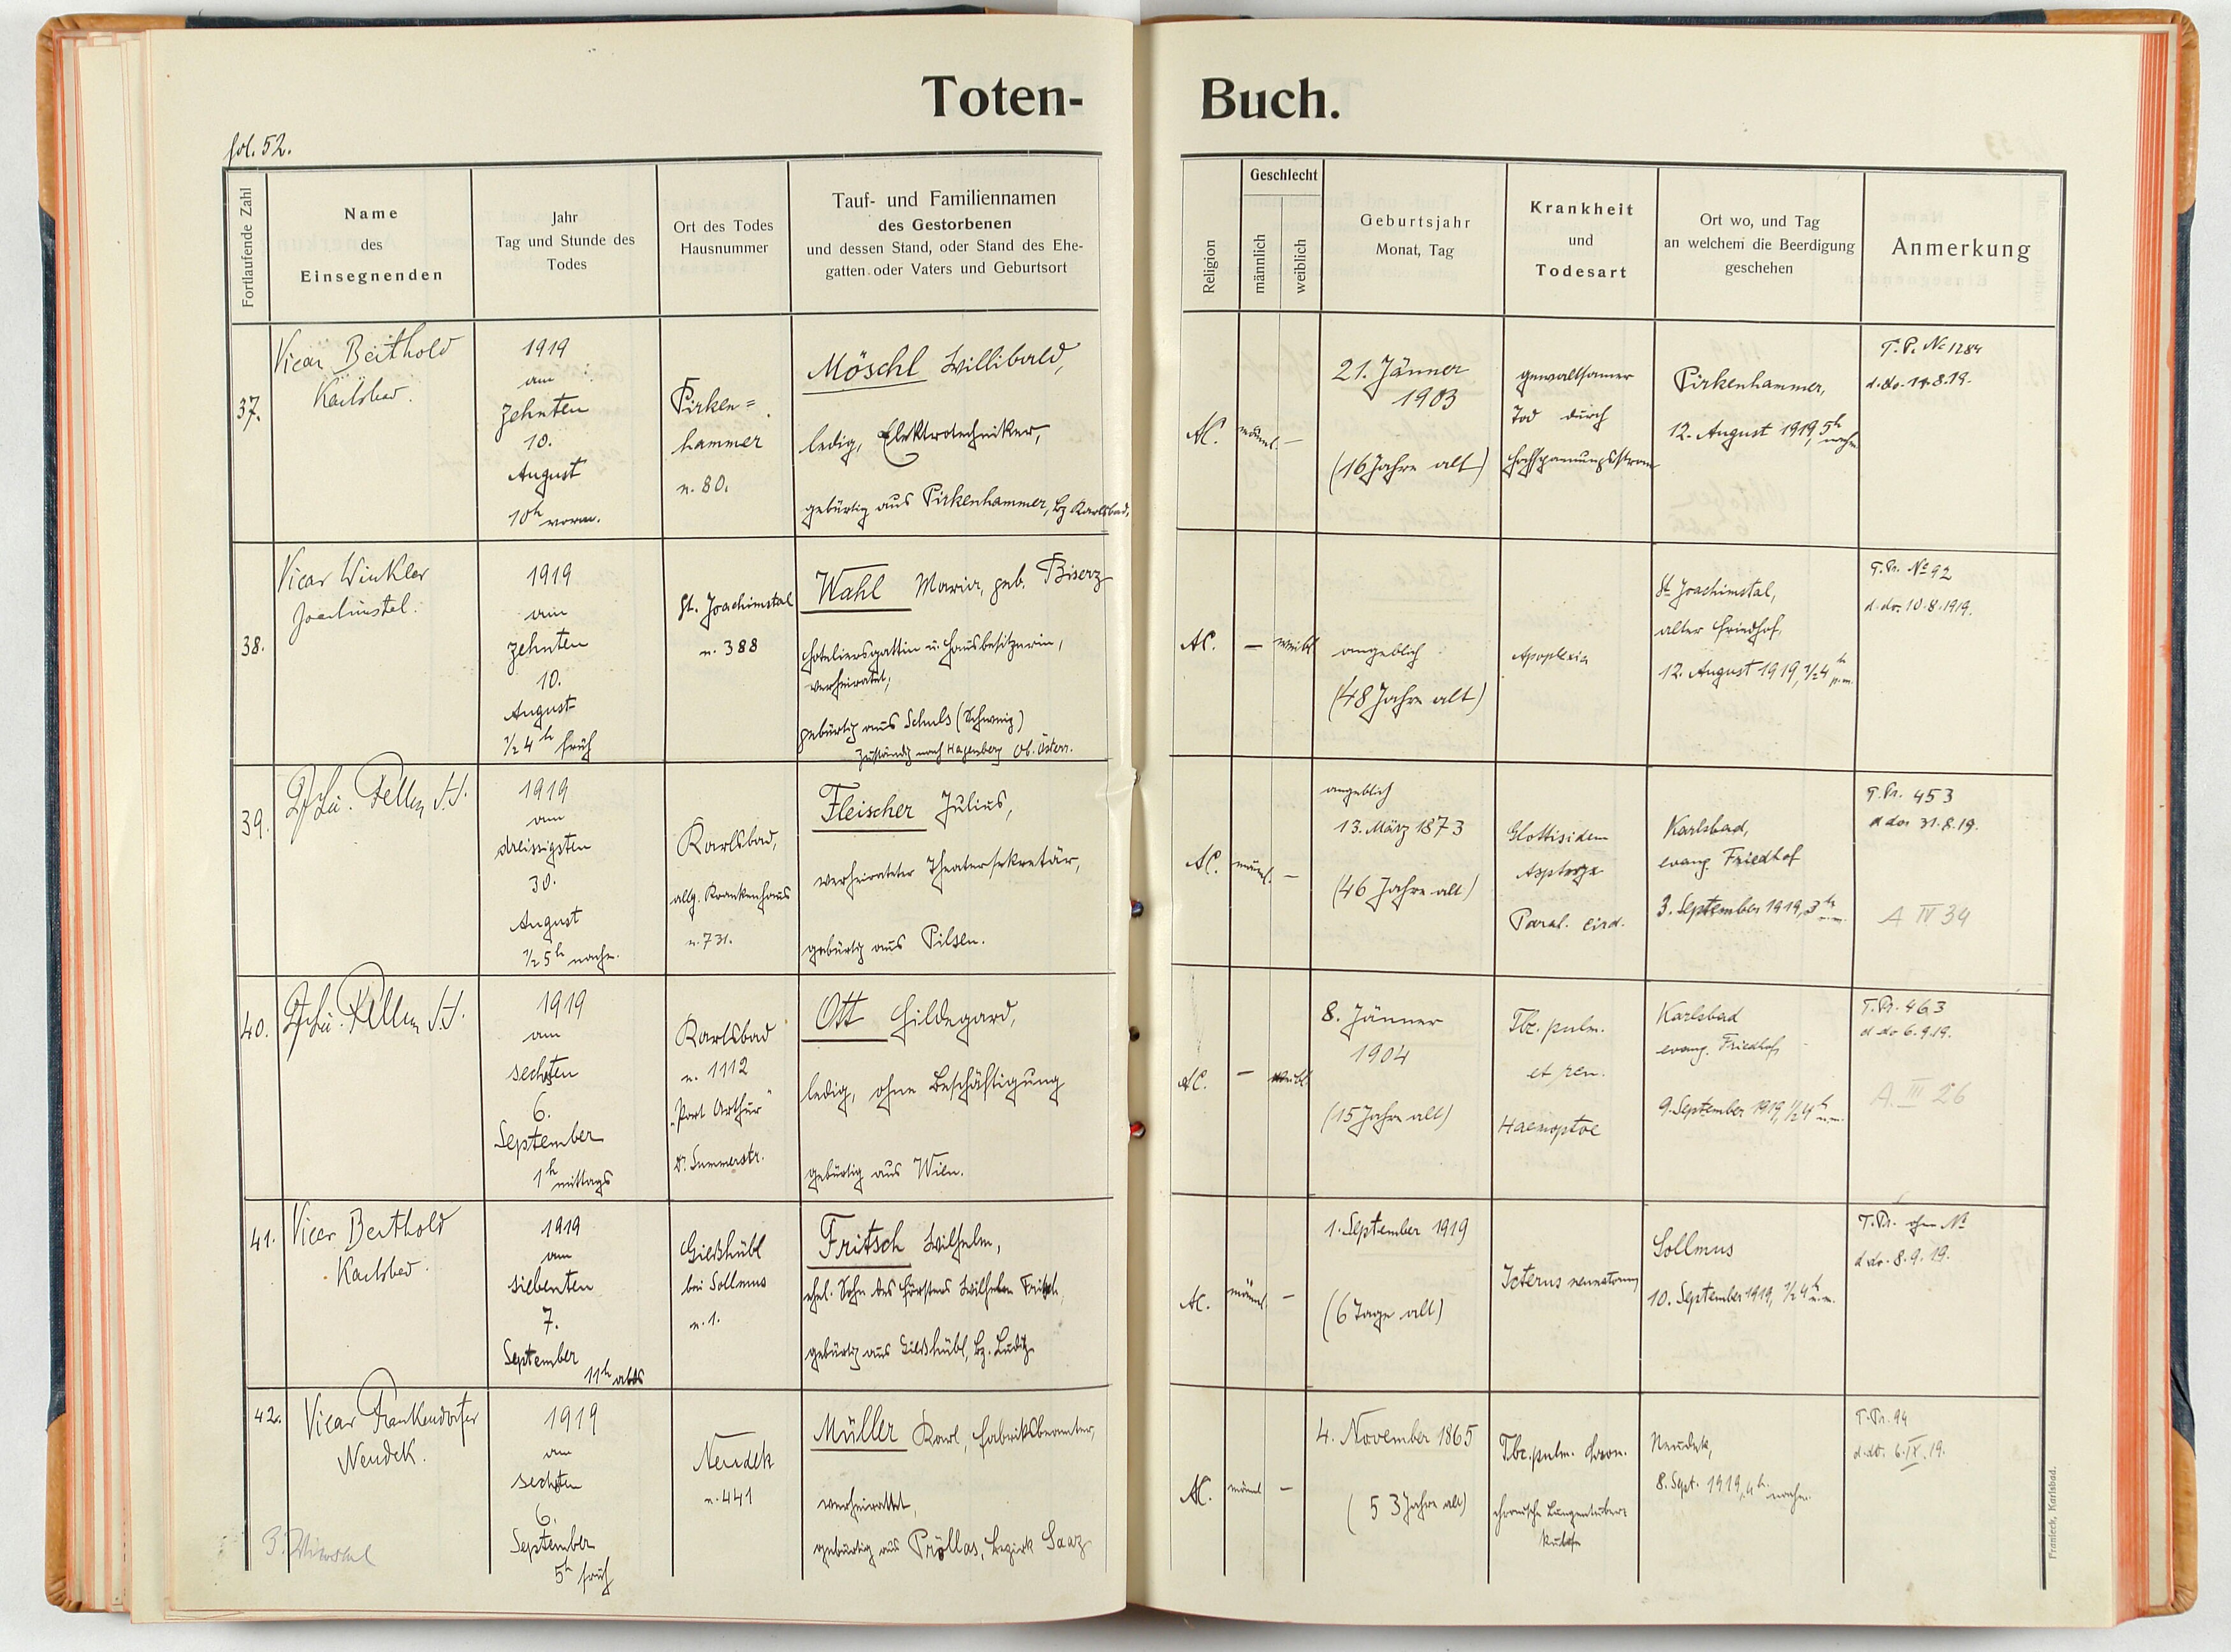 Toten-
Buch.
fol. 52.
Fortlaufende Zahl
Name
des
Einsegnenden
Jahr
Tag und Stunde des
Todes
Ort des Todes
Hausnummer
Tauf- und Familiennamen
des Gestorbenen
und dessen Stand, oder Stand des Ehe-
gatten oder Vaters und Geburtsort
Religion
Geschlecht
männlich
weiblich
Geburtsjahr
Monat, Tag
Krankheit
und
Todesart
Ort wo, und Tag
an welchem die Beerdigung
geschehen
Anmerkung
37.
Vicar Berthold
Karlsbad.
1919
am
zehnten
10.
August
10h vorm.
Pirken=
hammer
n. 80.
Möschl Willibald,
ledig, Elektrotechniker,
gebürtig aus Pirkenhammer, Bz Karlsbad,
AC.
männl.
—
21. Jänner
1903
(16 Jahre alt)
gewaltsamer
Tod durch
Hochspannungsstrom
Pirkenhammer,
12. August 1919, 5h
nachm
T. Pr. No 1284
d. do. 14.8.19.
38.
Vicar Winkler
Joachimstal.
1919
am
zehnten
10.
August
1/2 4h früh
St. Joachimstal
n. 388
Wahl Maria, geb. Biserz
Hoteliersgattin u. Hausbesitzerin,
verheiratet;
gebürtig aus Schuls (Schweiz)
zuständig nach Hagenberg Ob. Österr.
AC.
—
weibl
angeblich
(48 Jahre alt)
Apoplexia
St Joachimstal,
alter Friedhof,
12. August 1919, 1/2 4h
p.m.
T. Pr. No 92
d. do. 10.8.1919.
39.
1919
am
dreissigsten
30.
August
1/2 5h nachm.
Karlsbad,
allg. Krankenhaus
n. 731.
Fleischer Julius,
verheirateter Theatersekretär,
gebürtig aus Pilsen.
AC.
männl.
—
angeblich
13. März 1873
(46 Jahre alt)
Glottisidem
Paral. cird.
Karlsbad,
evang. Friedhof
3. September 1919, 3h n.m.
T. Pr. 453
d do. 31.8.19.
A IV 34
40.
1919
am
sechsten
6.
September
1h mittags
Karlsbad
n. 1112
„Port Arthur"
Ott Hildegard,
ledig, ohne Beschäftigung
gebürtig aus Wien.
AC.
—
weibl.
8. Jänner
1904
(15 Jahre alt)
Tbc. pulm.
et ren.
Haemoptoe
Karlsbad
evang. Friedhof
9. September 1919, 1/2 4h n.m.
T. Pr. 463
d do 6.9.19.
A. III 26
41.
Vicar Berthold
Karlsbad.
1919
am
siebenten
7.
September
11h abds
Gießhübl
bei Sollmus
n. 1.
Fritsch Wilhelm,
ehel. Sohn des Försters Wilhelm Fritsch,
gebürtig aus Gießhübl, Bz. Luditz
AC.
männl.
—
1. September 1919
(6 Tage alt)
Icterus neonatorum
Sollmus
10. September 1919, 1/2 4h n.m.
T. Pr. ohne No
d do. 8.9.19.
42.
Vicar Frankendorfer
Neudek.
1919
am
sechsten
6.
September
5h früh
Neudek
n. 441
Müller Karl, Fabriksbeamter,
verheiratet,
gebürtig aus Pröllas, Bezirk Saaz
AC.
männl
—
4. November 1865
(53 Jahre alt)
Tbc. pulm. chron.
chronische Lungentuber=
kulose
Neudek,
8. Sept. 1919, 4h nachm.
T. Pr. 94
d. do. 6.IX.19.
Franieck, Karlsbad.